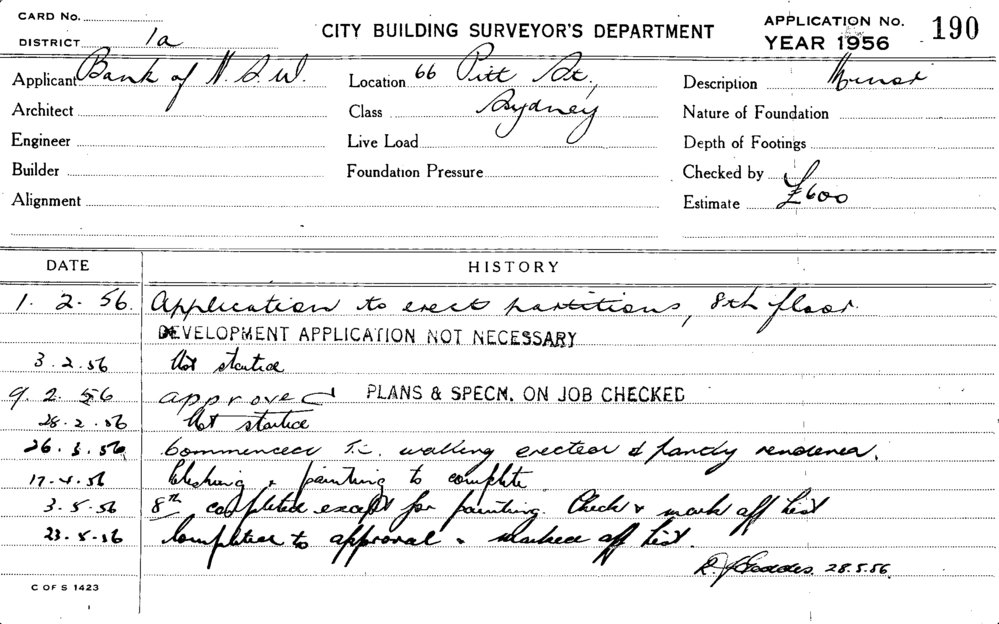 CARD No.
DISTRICT 1a
CITY BUILDING SURVEYOR'S DEPARTMENT
APPLICATION No. 190
YEAR 1956
Applicant Bank of N.S.W.
Location 66 Pitt St,
Description Minor
Architect
Class Sydney
Nature of Foundation
Engineer
Live Load
Depth of Footings
Builder
Foundation Pressure
Checked by
Alignment
Estimate £600
DATE HISTORY
1. 2. 56. Application to erect partitions, 8th floor.
DEVELOPMENT APPLICATION NOT NECESSARY
3.2.56 Not started
9. 2. 56 approved PLANS & SPECN. ON JOB CHECKED
28.2.56 Not started
26.3.56, Commenced T.C. walling erected & partly rendered.
17.4.56 & painting to complete
3.5.56 8th completed except for painting. Check & mark off list
23.5.56 Completed to approval & marked off list.
R. Geddes. 28.5.56.
C OF S 1423